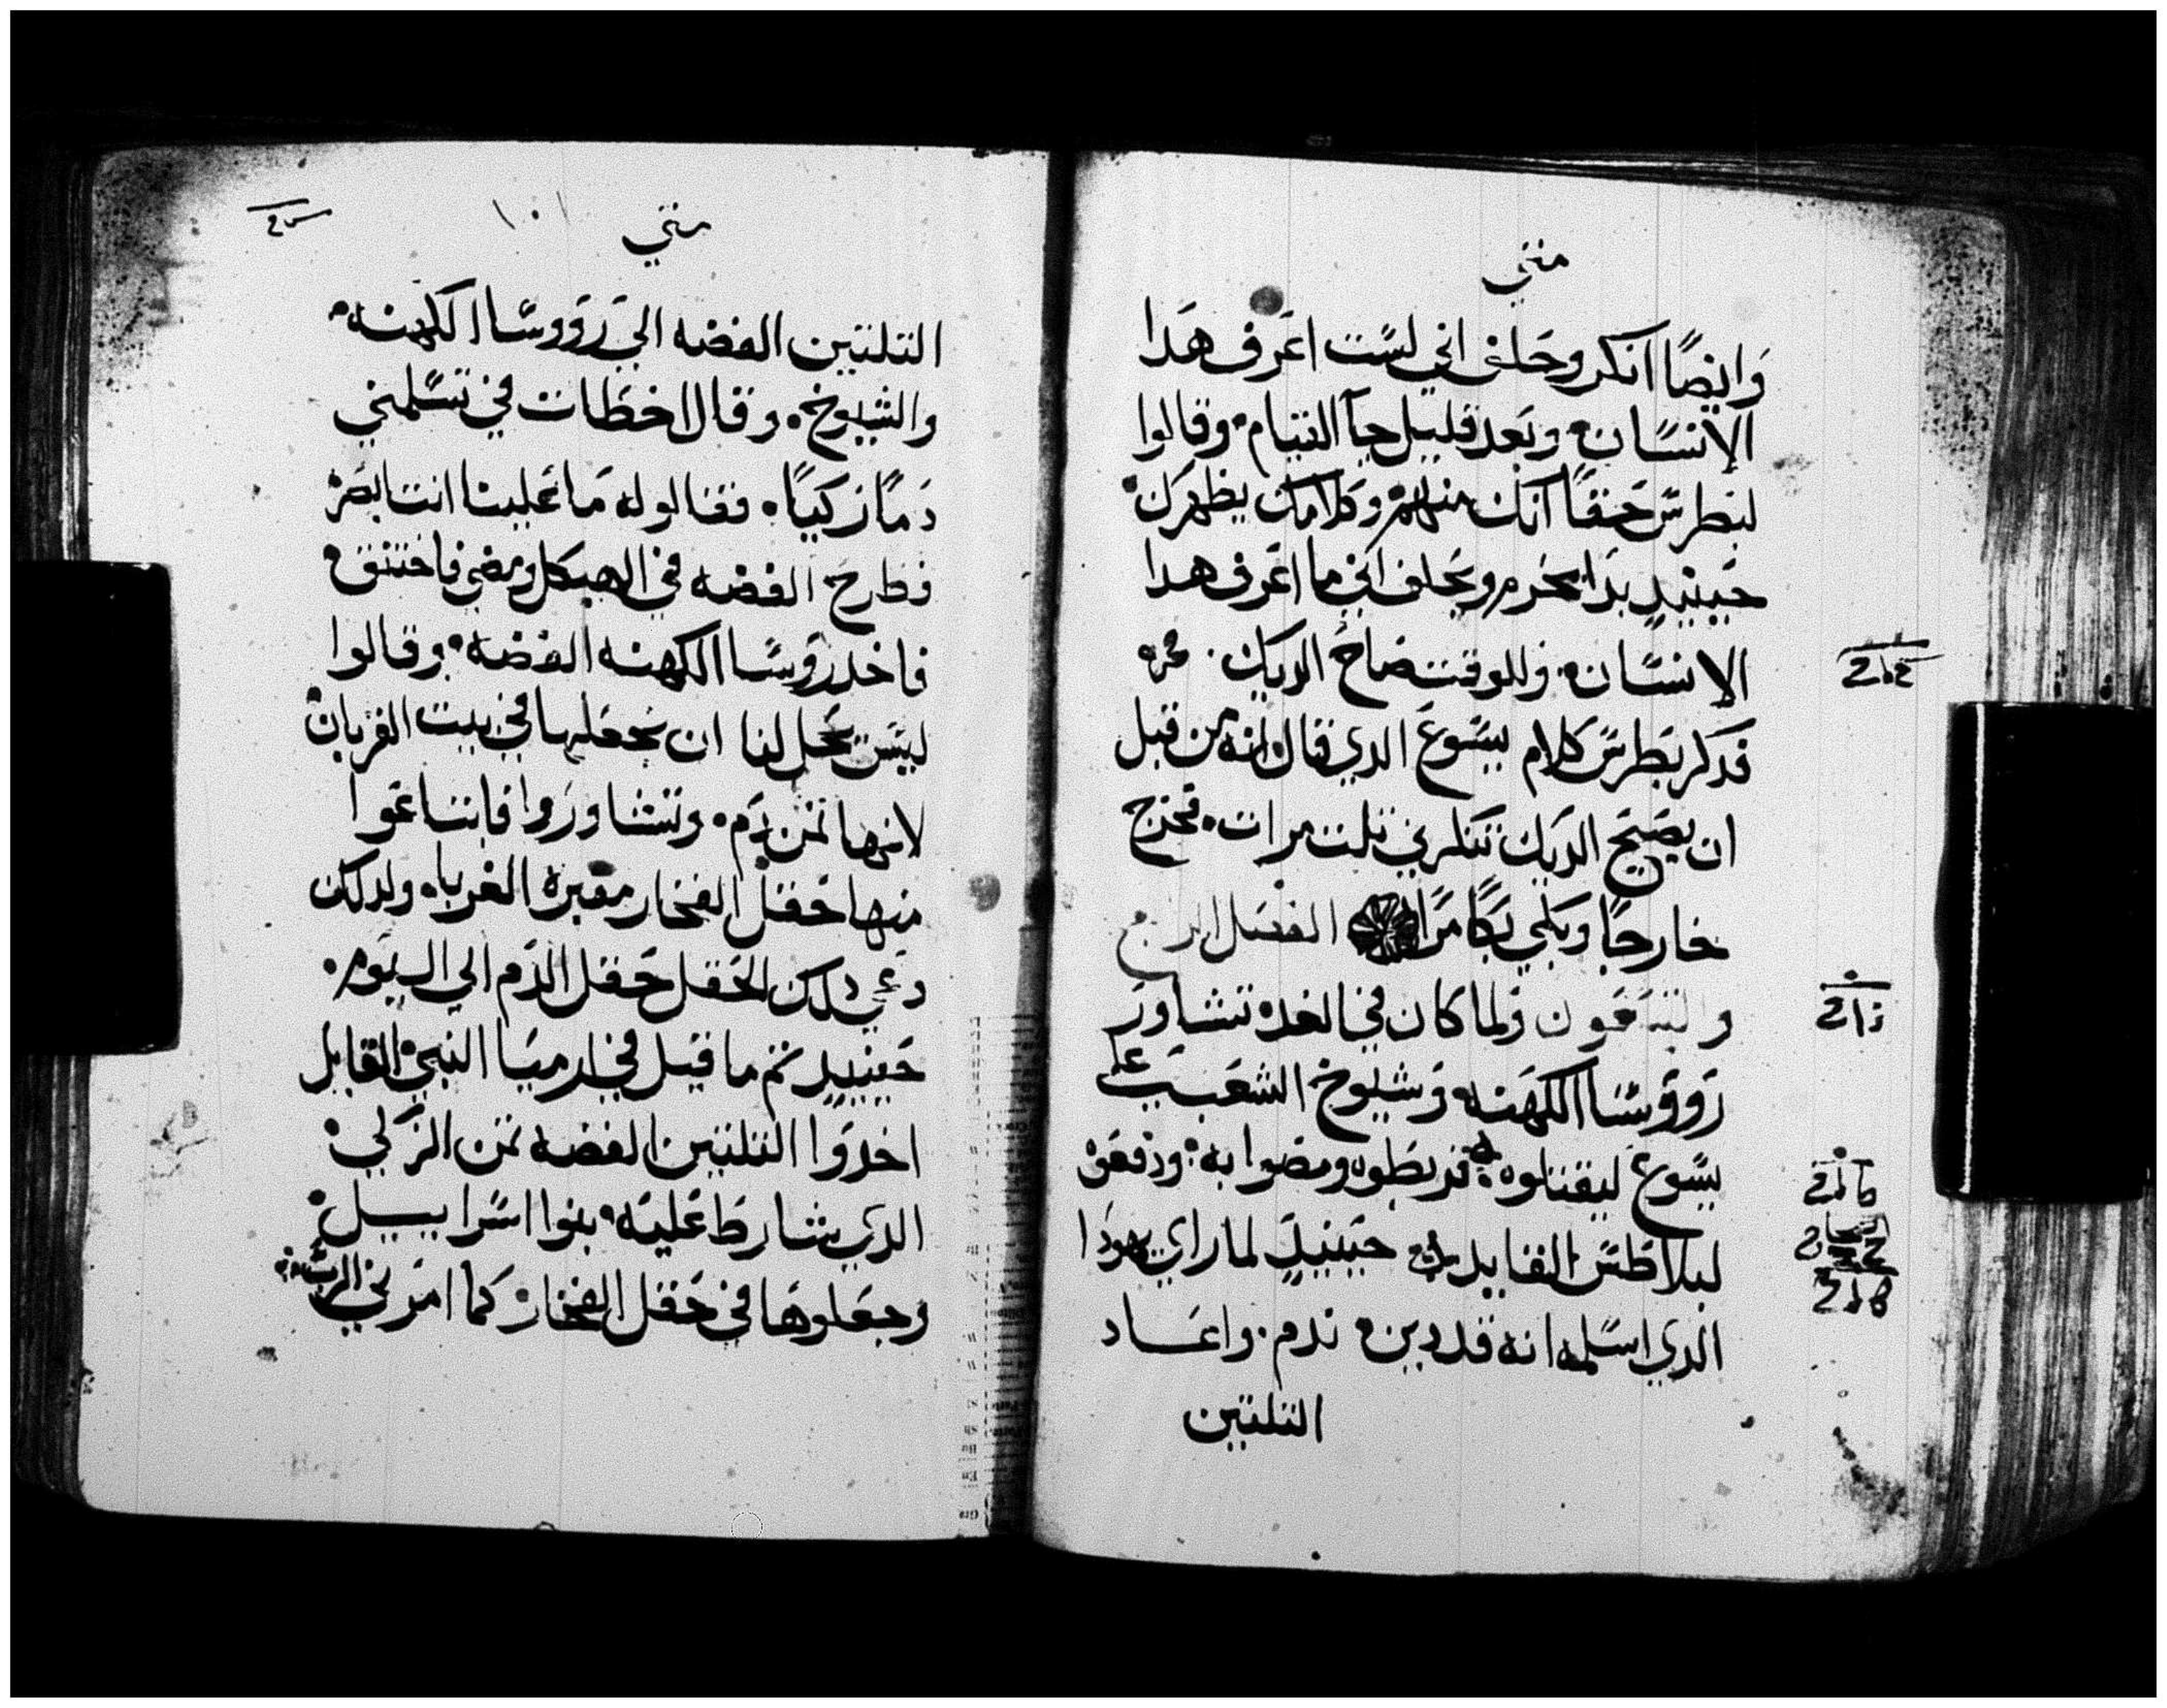 متي
وايضًا انكر وحلف اني لست اعرف هدا
الانسان وبعد قليل جآ القيام وقالوا
لبطرس حقًا انك منهم وكلامك يظهرك
حينيدٍ بدا يحرم ويحلف اني ما اعرف هدا
الانسان وللوقت صاح الديك . مره
فدكر بطرس كلام يسوع الدي قال انه من قبل
ان يصيح الديك تنكرني تلت مرات فخرج
خارجًا وبكي بكًا مرًا الفصل الرابع
والتسعون ولما كان في الغده تشاور
رووسا الكهنه وشيوخ الشعب علي
يسوع ليقتلوه فربطوه ومضوا به ودفعوه
لبلاطس القايد حينيدٍ لما راي يهودا
الدي اسلمه انه قد دين ندم . واعاد
التلتين
متي ١٠١
التلتين الفضه الي رووسا الكهنه
والشيوخ وقال اخطات في تسلمي
دمًا زكيًا فقالوا له ما علينا انت ابصر
فطرح الفضه في الهيكل ومضي فاختنق
فاخد رووسا الكهنه الفضه وقالوا
ليس يحل لنا ان نجعلها في بيت القربان
لانها تمن دم وتشاوروا فابتاعوا
منها حقل الفخار مقبره الغربا ولدلك
دعي دلك الحقل حقل الدم الي اليوم .
حينيدٍ تم ما قيل في ارميا النبي القايل
اخدوا التلتين الفضه تمن الزكي
الدي شارط عليه بنوا اسراييل
وجعلوها في حقل الفخار كما امرني الرب